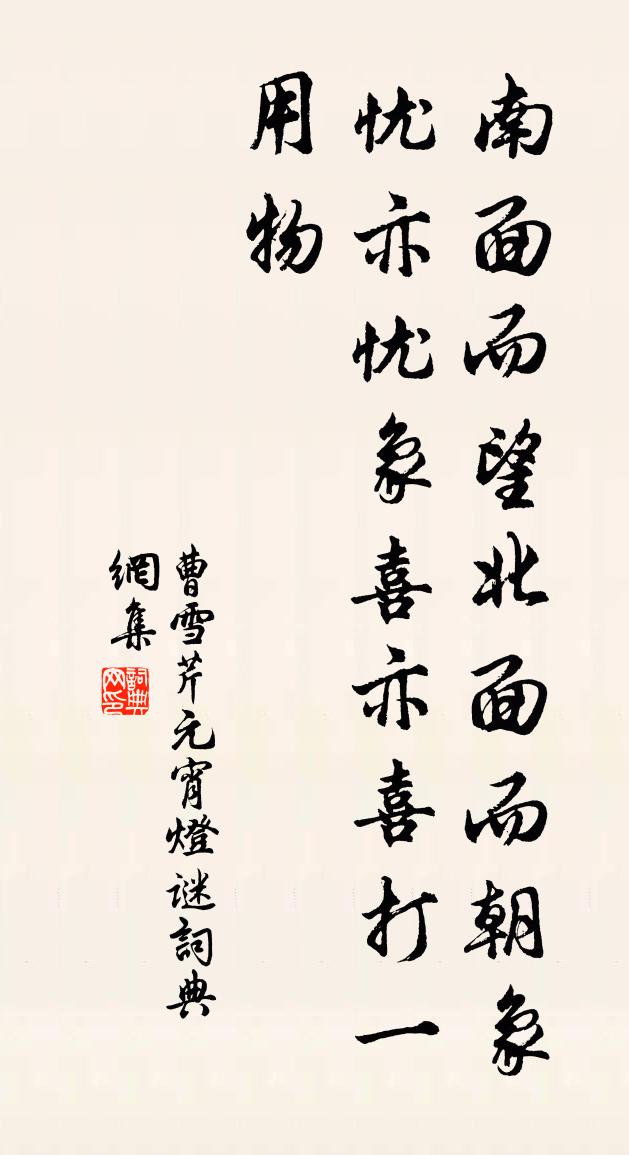 南面而望北面而朝象
忧亦忧象喜亦喜打一
用物
曹雪芹元宵燈谜詞典
網集
詞典网印